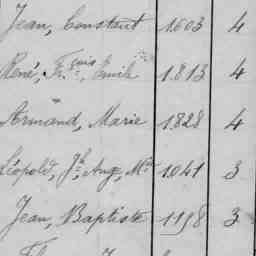 Jean, Constant 1.603 4
René, Fr.çois, Emile 1.813 4
Armand, Marie 1.828 4
Léopold, Jh, Aug, Mie 1.041 3
Jean, Baptiste 1198 3